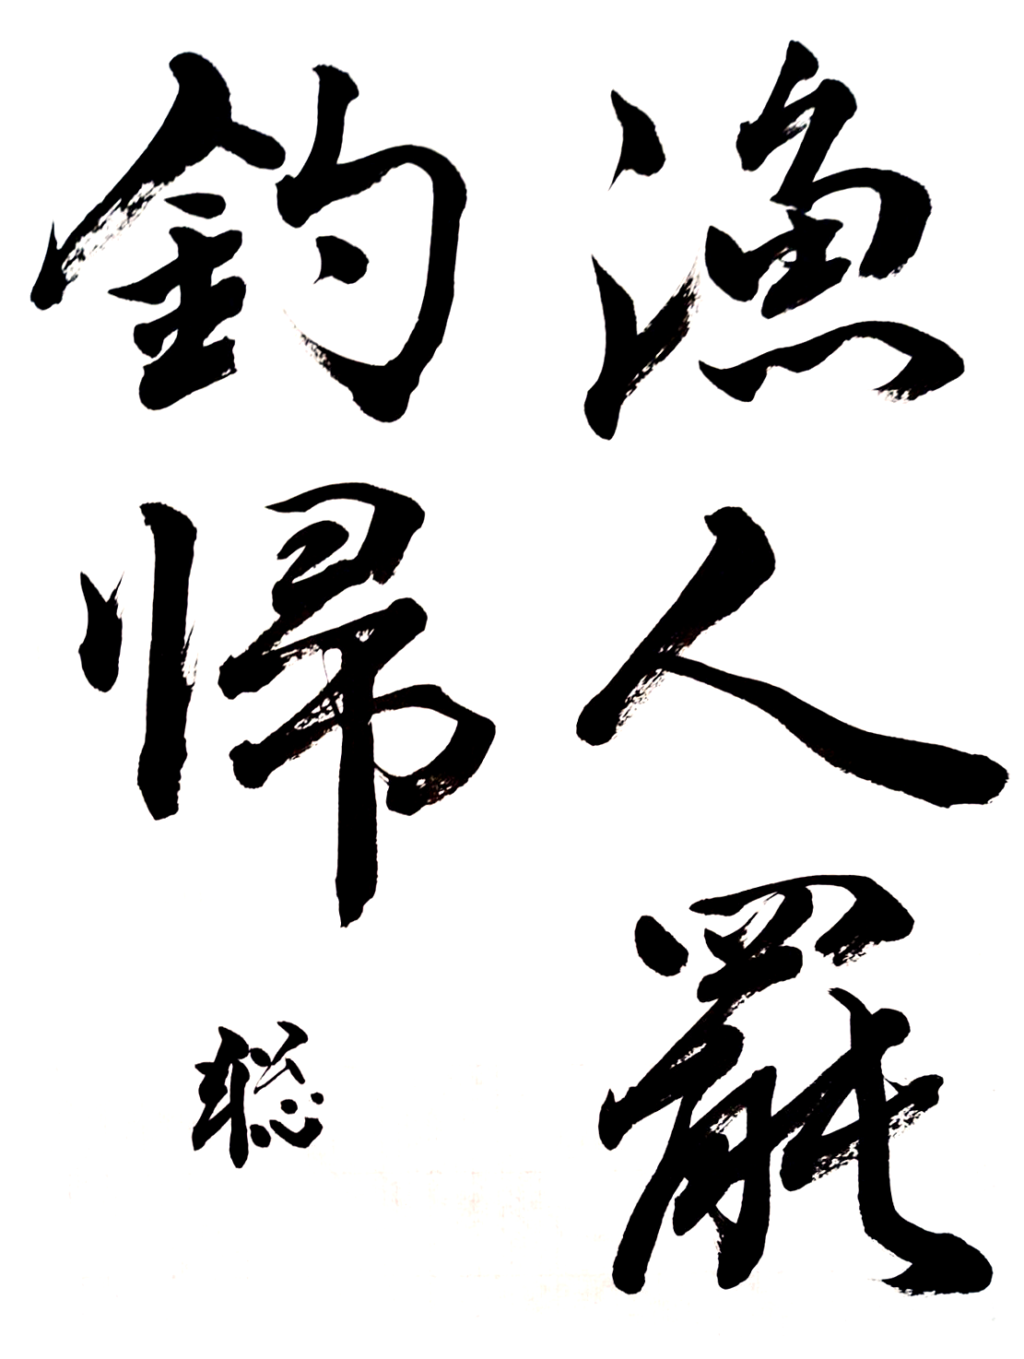 漁人罷
釣帰
聡